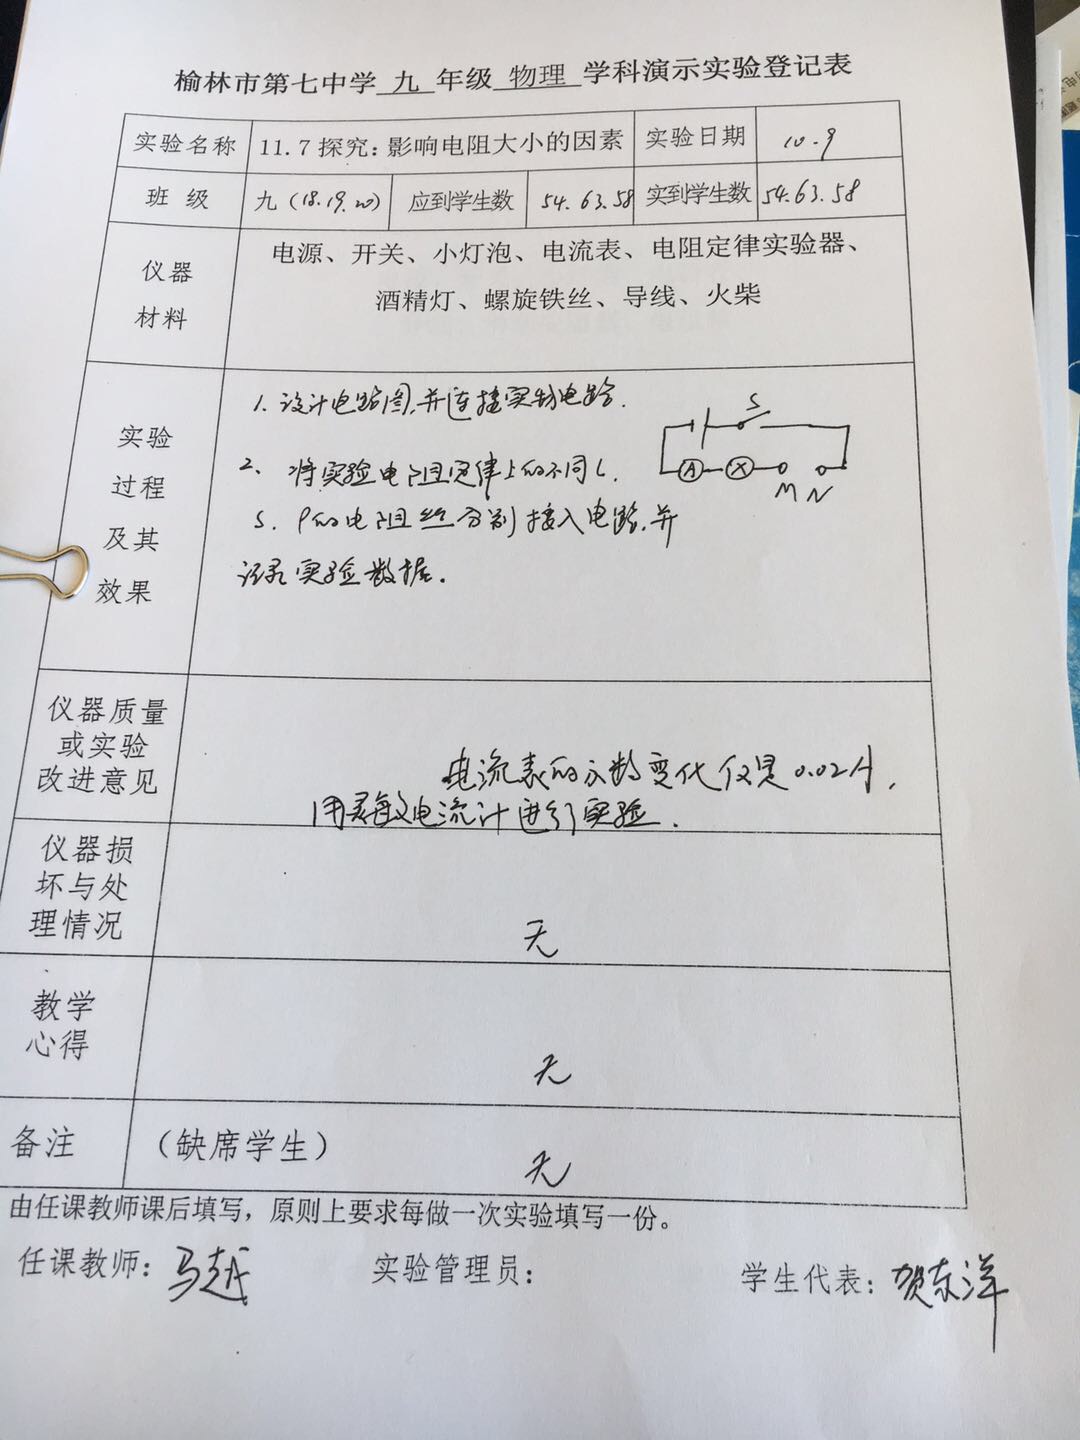 榆林市第七中学 九 年级 物理 学科演示实验登记表
实验名称 11.7 探究：影响电阻大小的因素 实验日期 10.9
班 级 九（18.19.20） 应到学生数 54.63.58 实到学生数 54.63.58
仪器
材料
电源、开关、小灯泡、电流表、电阻定律实验器、
酒精灯、螺旋铁丝、导线、火柴
实验
过程
及其
效果
1. 设计电路图,并连接实物电路.
2、将实验电阻定律上的不同L.
S. ρ的电阻丝分别接入电路,并
记录实验数据.
S
A X
M N
仪器质量
或实验
改进意见
电流表的示数变化仅是0.02A,
用灵敏电流计进行实验.
仪器损
坏与处
理情况
无
教学
心得
无
备注 （缺席学生）
无
由任课教师课后填写，原则上要求每做一次实验填写一份。
任课教师：马越 实验管理员： 学生代表：贺东洋